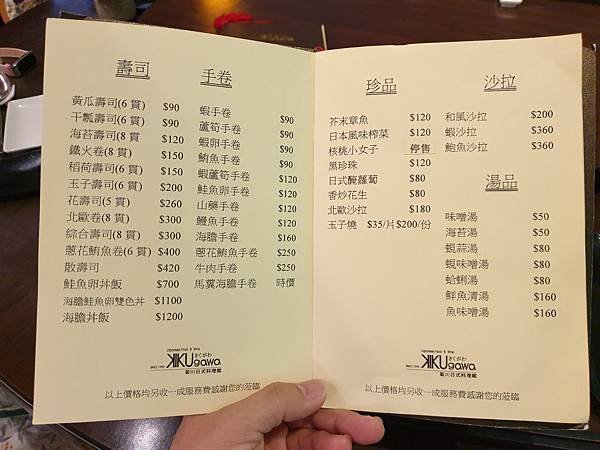 壽司
黃瓜壽司(6 貫) $90
干瓢壽司(6 貫) $90
海苔壽司(8 貫 $120
鐵火卷(8 貫) $150
稻荷壽司(6 貫) $150
玉子壽司(6 貫) $200
花壽司(5 貫) $260
北歐卷(8 貫) $300
綜合壽司(8 貫) $300
蔥花鮪魚卷(6 貫) $400
散壽司 $420
鮭魚卵丼飯 $700
海膽鮭魚卵雙色丼 $1100
海膽丼飯 $1200
手卷
蝦手卷 $90
蘆筍手卷 $90
蝦卵手卷 $90
鮪魚手卷 $90
蝦蘆筍手卷 $120
鮭魚卵手卷 $120
山藥手卷 $120
鰻魚手卷 $120
海膽手卷 $160
蔥花鮪魚手卷 $250
牛肉手卷 $250
馬糞海膽手卷 時價
Japanese Food & Wine
きくがわ
KIKUgawa
菊川日式料理館
以上價格均另收一成服務費感謝您的蒞臨
珍品
芥末章魚 $120
日本風味榨菜 $120
核桃小女子 停售
黑珍珠 $120
日式醃蘿蔔 $80
香炒花生 $80
北歐沙拉 $180
玉子燒 $35/片 $200/份
沙拉
和風沙拉 $200
蝦沙拉 $360
鮑魚沙拉 $360
湯品
味噌湯 $50
海苔湯 $50
蜆蒜湯 $80
蜆味噌湯 $80
蛤蜊湯 $80
鮮魚清湯 $160
魚味噌湯 $160
Japanese Food & Wine
きくがわ
KIKUgawa
菊川日式料理館
以上價格均另收一成服務費感謝您的蒞臨